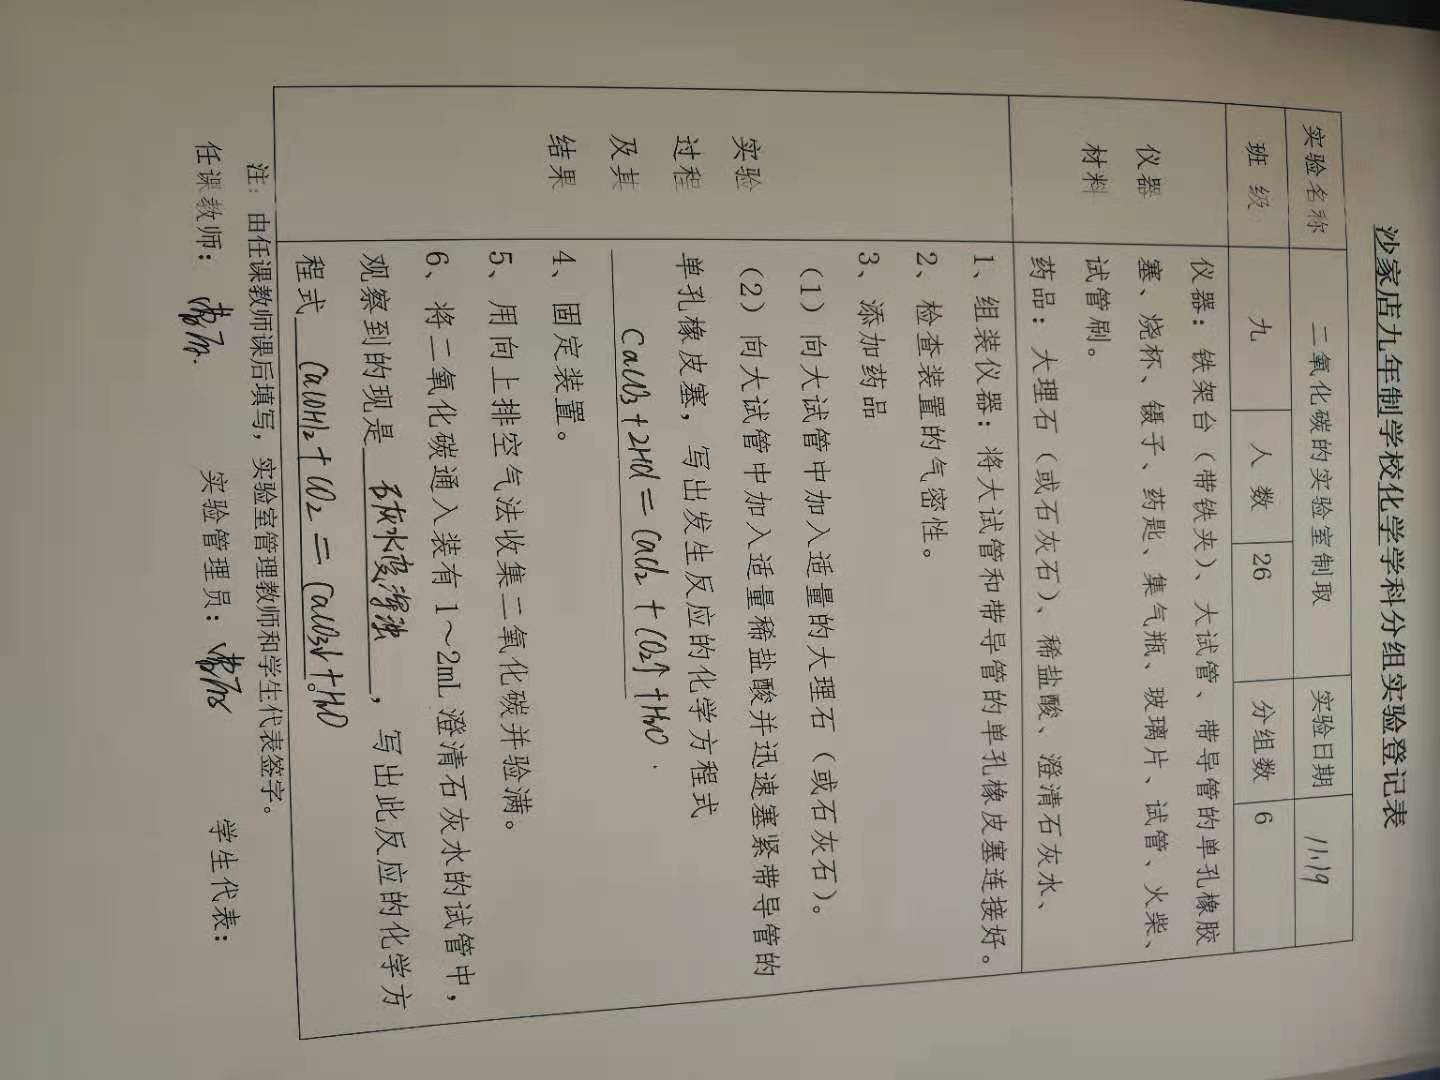 沙家店九年制学校化学学科分组实验登记表
实验名称 二氧化碳的实验室制取 实验日期 11.19
班 级 九 人 数 26 分组数 6
仪器材料
仪器：铁架台（带铁夹）、大试管、带导管的单孔橡胶
塞、烧杯、镊子、药匙、集气瓶、玻璃片、试管、火柴、
试管刷。
药品：大理石（或石灰石）、稀盐酸、澄清石灰水、
实验过程及其结果
1、组装仪器：将大试管和带导管的单孔橡皮塞连接好。
2、检查装置的气密性。
3、添加药品
（1）向大试管中加入适量的大理石（或石灰石）。
（2）向大试管中加入适量稀盐酸并迅速塞紧带导管的
单孔橡皮塞，写出发生反应的化学方程式
CaCO₃+2HCl=CaCl₂+CO₂↑+H₂O.
4、固定装置。
5、用向上排空气法收集二氧化碳并验满。
6、将二氧化碳通入装有1～2mL澄清石灰水的试管中，
观察到的现是 石灰水变浑浊 ，写出此反应的化学方
程式 Ca(OH)₂+CO₂=CaCO₃↓+H₂O。
注：由任课教师课后填写，实验室管理教师和学生代表签字。
任课教师： 实验管理员： 学生代表：